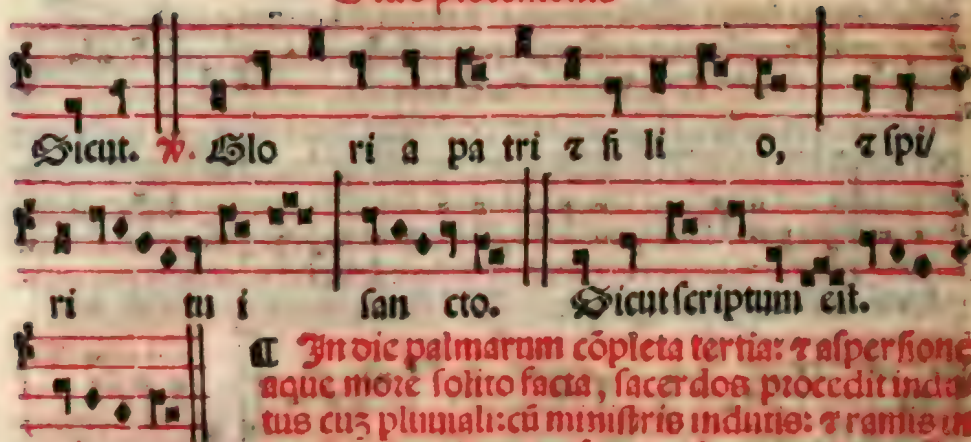 Sicut. ℣. Glo ri a pa tri ⁊ fi li o, ⁊ spi/
ri tu i san cto. Sicut scriptum est.
¶ In die palmarum cōpleta tertia: ⁊ aspersione
aque more solito facta, sacerdos procedit indu
tus cuʒ pluuiali: cū ministris indutis: ⁊ ramis